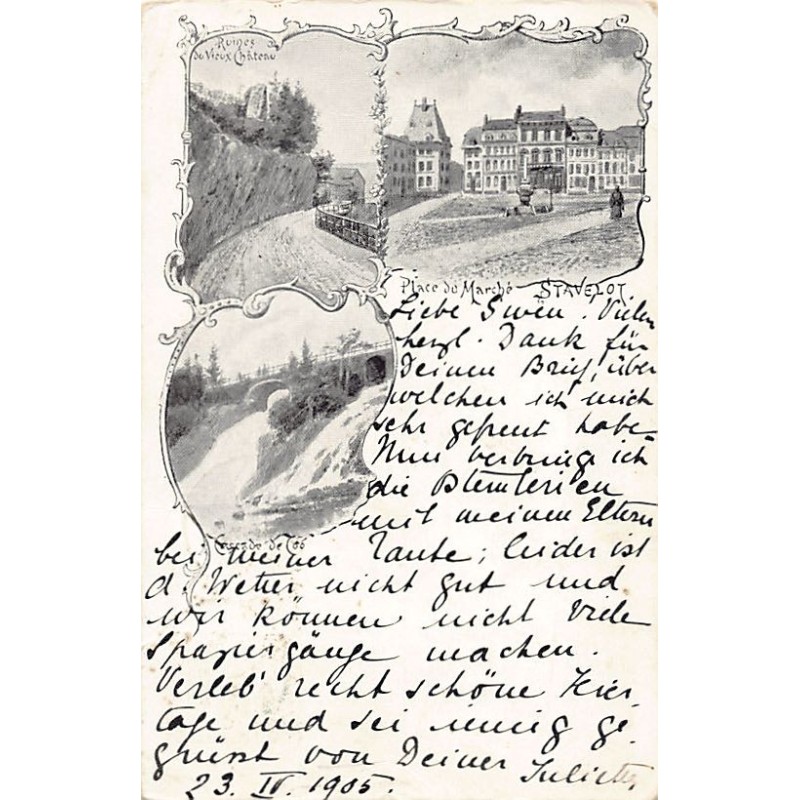 Ruines
du Vieux Château
Place du Marché STAVELOT
Cascade de Coo
Liebe Swen. Vielen
herzl. Dank für
Deinen Brief, über
welchen ich mich
sehr gefreut habe.
Nun verbringe ich
die
mit meinen Eltern
bei meiner Tante; leider ist
d. Wetter nicht gut und
wir können nicht viele
Spaziergänge machen.
Verleb' recht schöne
tage und sei innig ge-
grüsst von Deiner Juliette
23. IV. 1905.